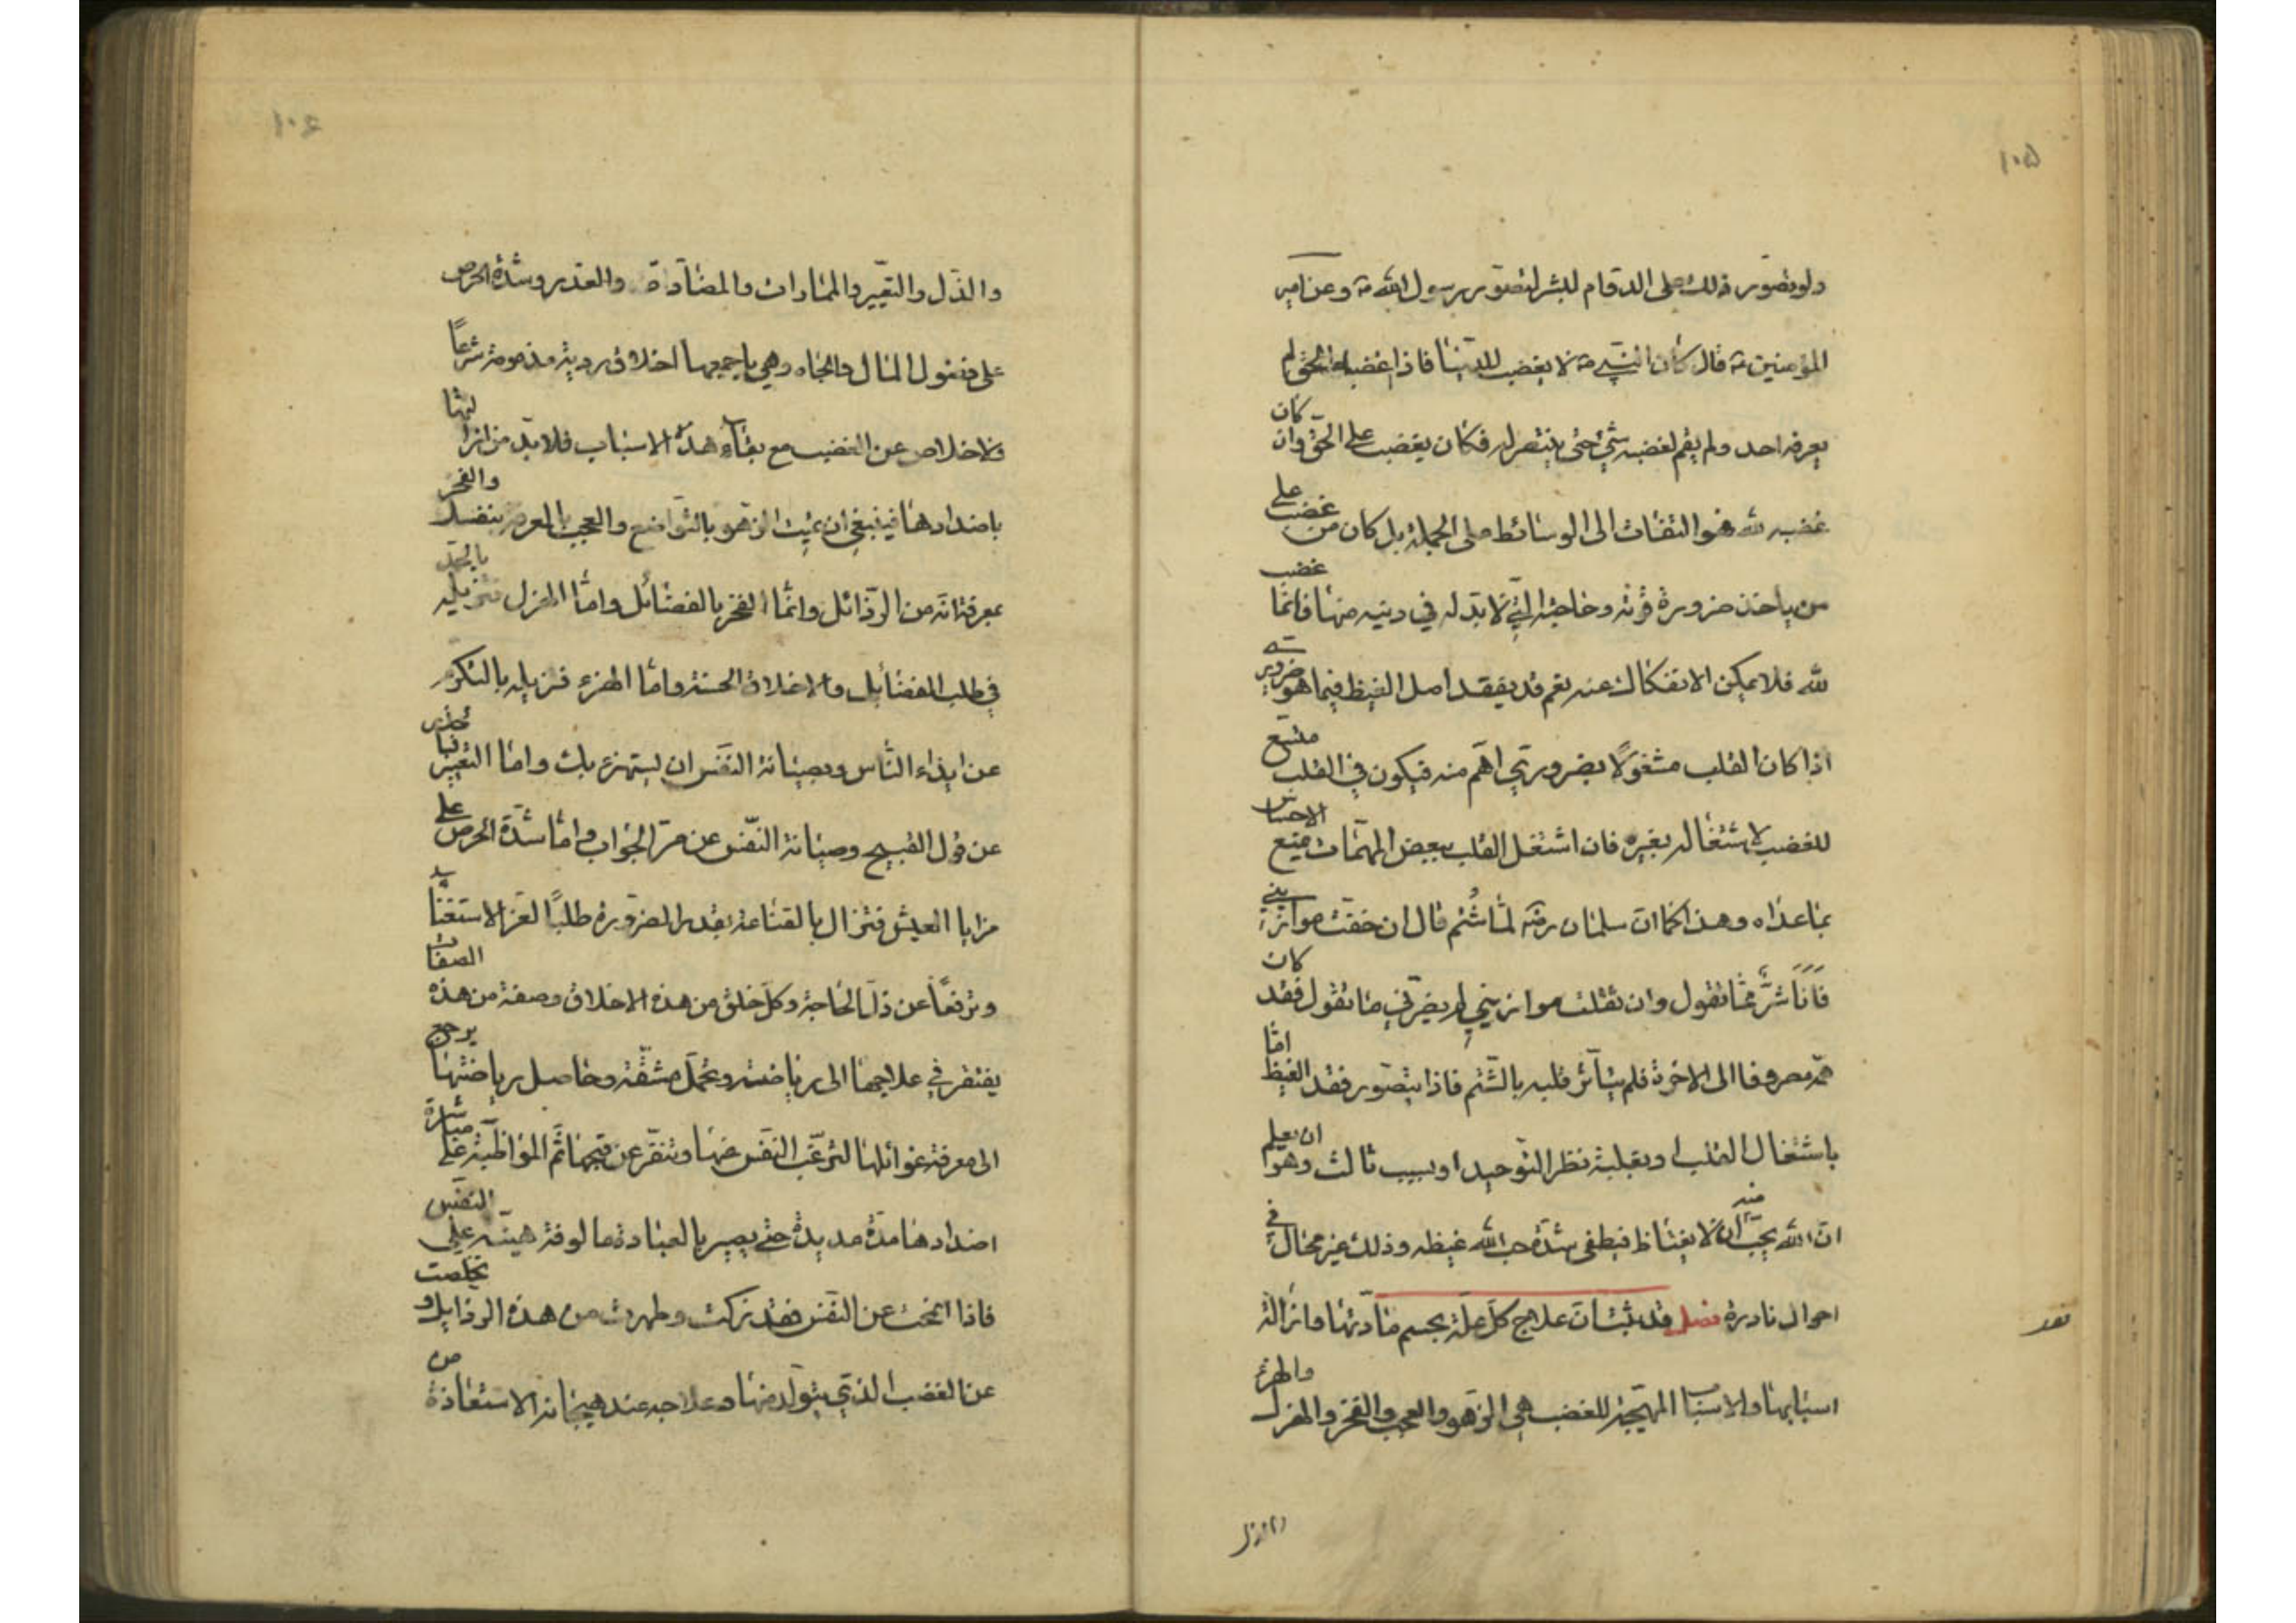 ١٠٥
ولو تصوّر ذلك على الدوام لبشر لتصوّر لرسول الله ص وعن امير
المؤمنين ع قال كان النبي ص لا يغضب للدنيا فاذا اغضبه الحق لم
يعرفه احد ولم يقم لغضبه شئ حتى ينتصر له فكان يغضب على الحق وان كان
غضبه لله فهو التفات الى الوسائط على الجملة بل كان من غضب على
من ياخذ ضرورة قوته وحاجته التي لا بد له في دينه منها فانما غضب
لله فلا يمكن الانفكاك عنه نعم قد يفقد اصل الغيظ فيما هو ضروري
اذا كان القلب مشغولًا بضروري اهم منه فيكون في القلب متسع
للغضب لاشتغاله بغيره فان اشتغل القلب ببعض المهمات يمنع الاحساس
بما عداه وهذا كما ان سلمان رضه لما شُتم قال ان خفت موازيني
فَاَنَا شرّ مما تقول وان ثقلت موازيني لم يضرني ما تقول فقد كان
همّه مصروفا الى الاخرة فلم يتأثر قلبه بالشتم فاذا يتصور فقد الغيظ امّا
باشتغال القلب او بغلبة نظر التوحيد او بسبب ثالث وهو ان يعلم
ان الله يحبّ منه ان لا يغتاظ فيطفى شدّة حب الله غيظه وذلك غير محال في
احوال نادرة فصل قد ثبت ان علاج كل علة بحسم مادتها وازالة
اسبابها والاسباب المهيجة للغضب هي الزهو والعجب والفخر والهزل والهزء
والذل
١٠٦
والذّل والتعيير والممارات والمضادّة والغدر وشدّة الحرص
على فضول المال والجاه وهي باجمعها اخلاق رديّة مذمومة شرعًا
ولا خلاص عن الغضب مع بقاء هذه الاسباب فلا بدّ من ازالتها
باضدادها فينبغي ان يميت الزهو بالتواضع والعجب بالمعرفة بنفسك والفخر
بمعرفة انه من الرذائل وانما الفخر بالفضائل واما الهزل فتزيله بالجد
في طلب الفضائل والاخلاق الحسنة واما الهزء فتزيله بالتكرم
عن ايذاء الناس وبصيانة النفس ان يستهزء بك واما التعيير فبالحذر
عن قول القبيح وصيانة النفس عن مرّ الجواب واما شدّة الحرص على
مزايا العيش فتزال بالقناعة بقدر الضرورة طلبًا لعز الاستغناء
وترفعًا عن ذلّ الحاجة وكل خلق من هذه الاخلاق وصفة من هذه الصفات
يفتقر في علاجها الى رياضة وتحمّل مشقّة وحاصل رياضتها يرجع
الى معرفة غوائلها لترغب النفس عنها وتنفر عن قبحها ثم المواظبة على مباشرة
اضدادها مدّة مديدة حتى يصير بالعادة مالوفة هينة على النفس
فاذا انمحت عن النفس فقد زكت وطهرت من هذه الرذايل و تخلصت
عن الغضب الذي يتولد منها وعلاجه عند هيجانه الاستعاذة من